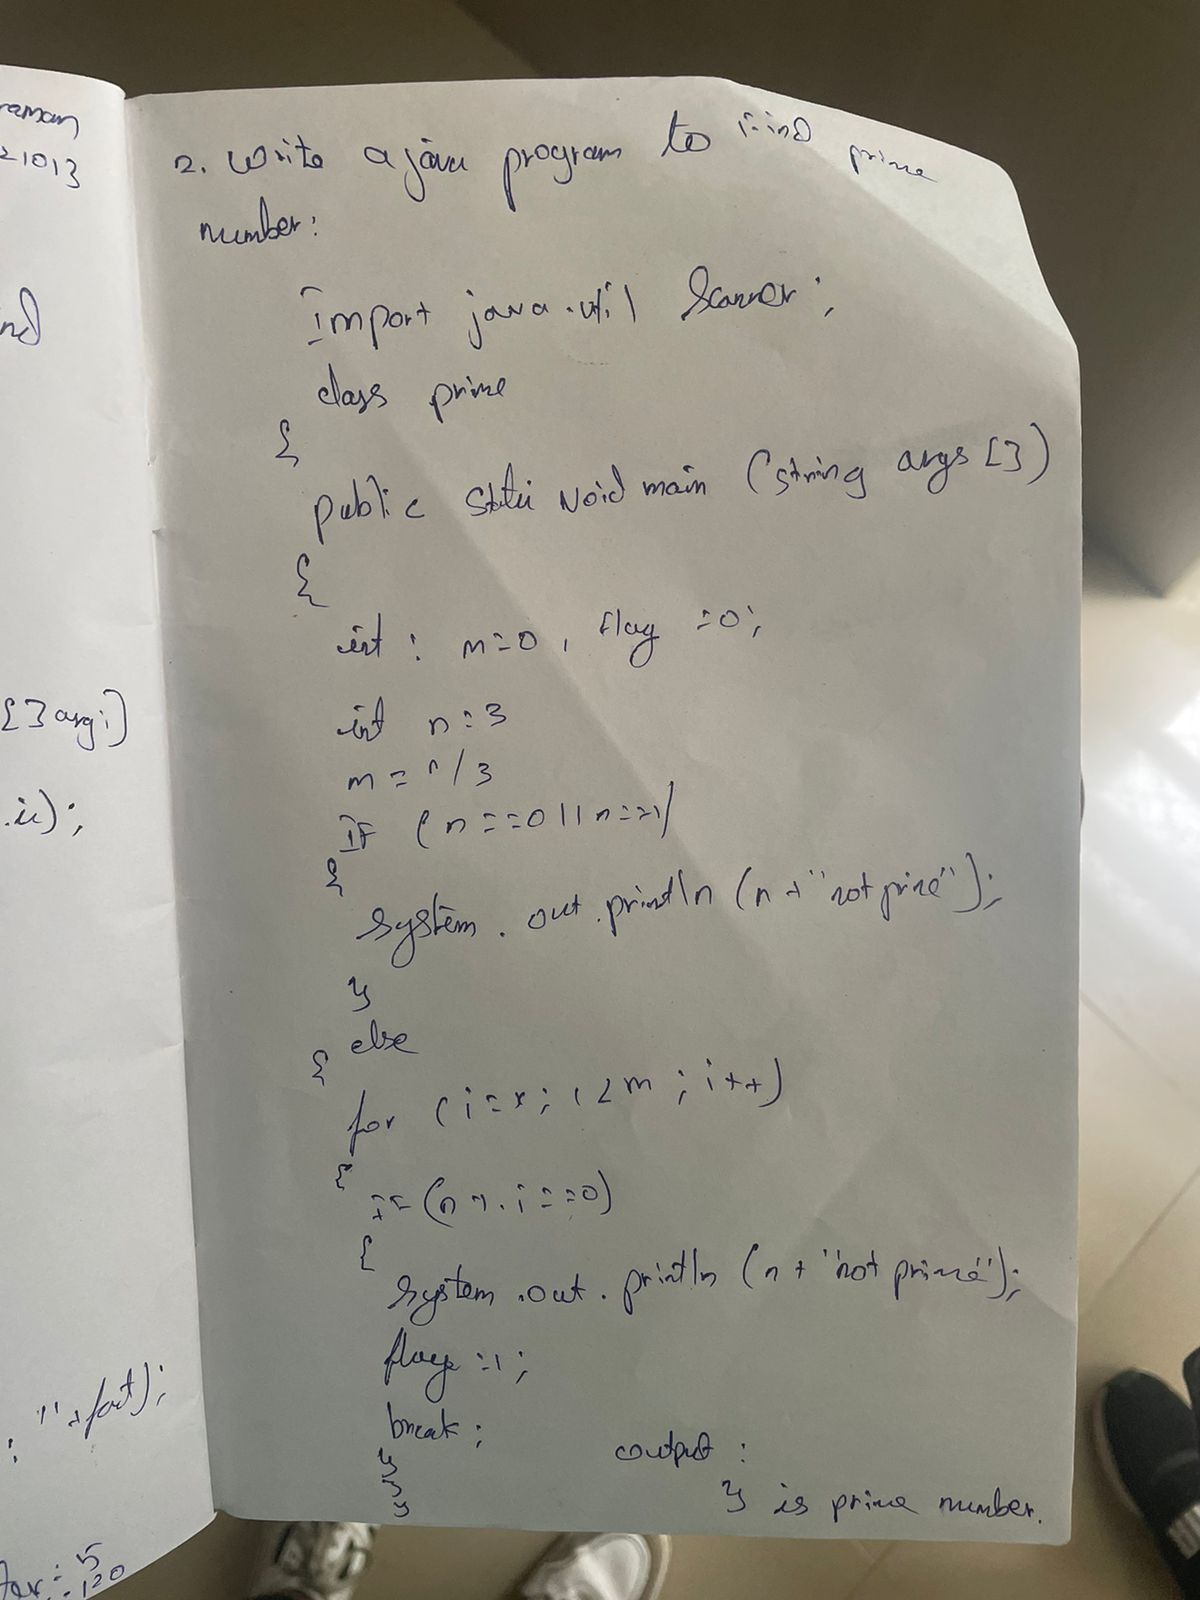 raman
21013
nd
[] args)
.in);
: "+fact);
for: 5
: 120
2. Write a java program to Find prime
number:
Import java.util Scanner;
class prime
{
public static void main (string args [])
{
int : m=0, flag =0;
int n=3
m = n/3
IF (n==0||n==1)
{
System.out.println (n+"not prime");
}
else
{
for (i=x; i<m; i++)
{
IF (n%.i==0)
{
System.out.println (n+"not prime");
flag =1;
break;
}
}
}
output :
3 is prime number.